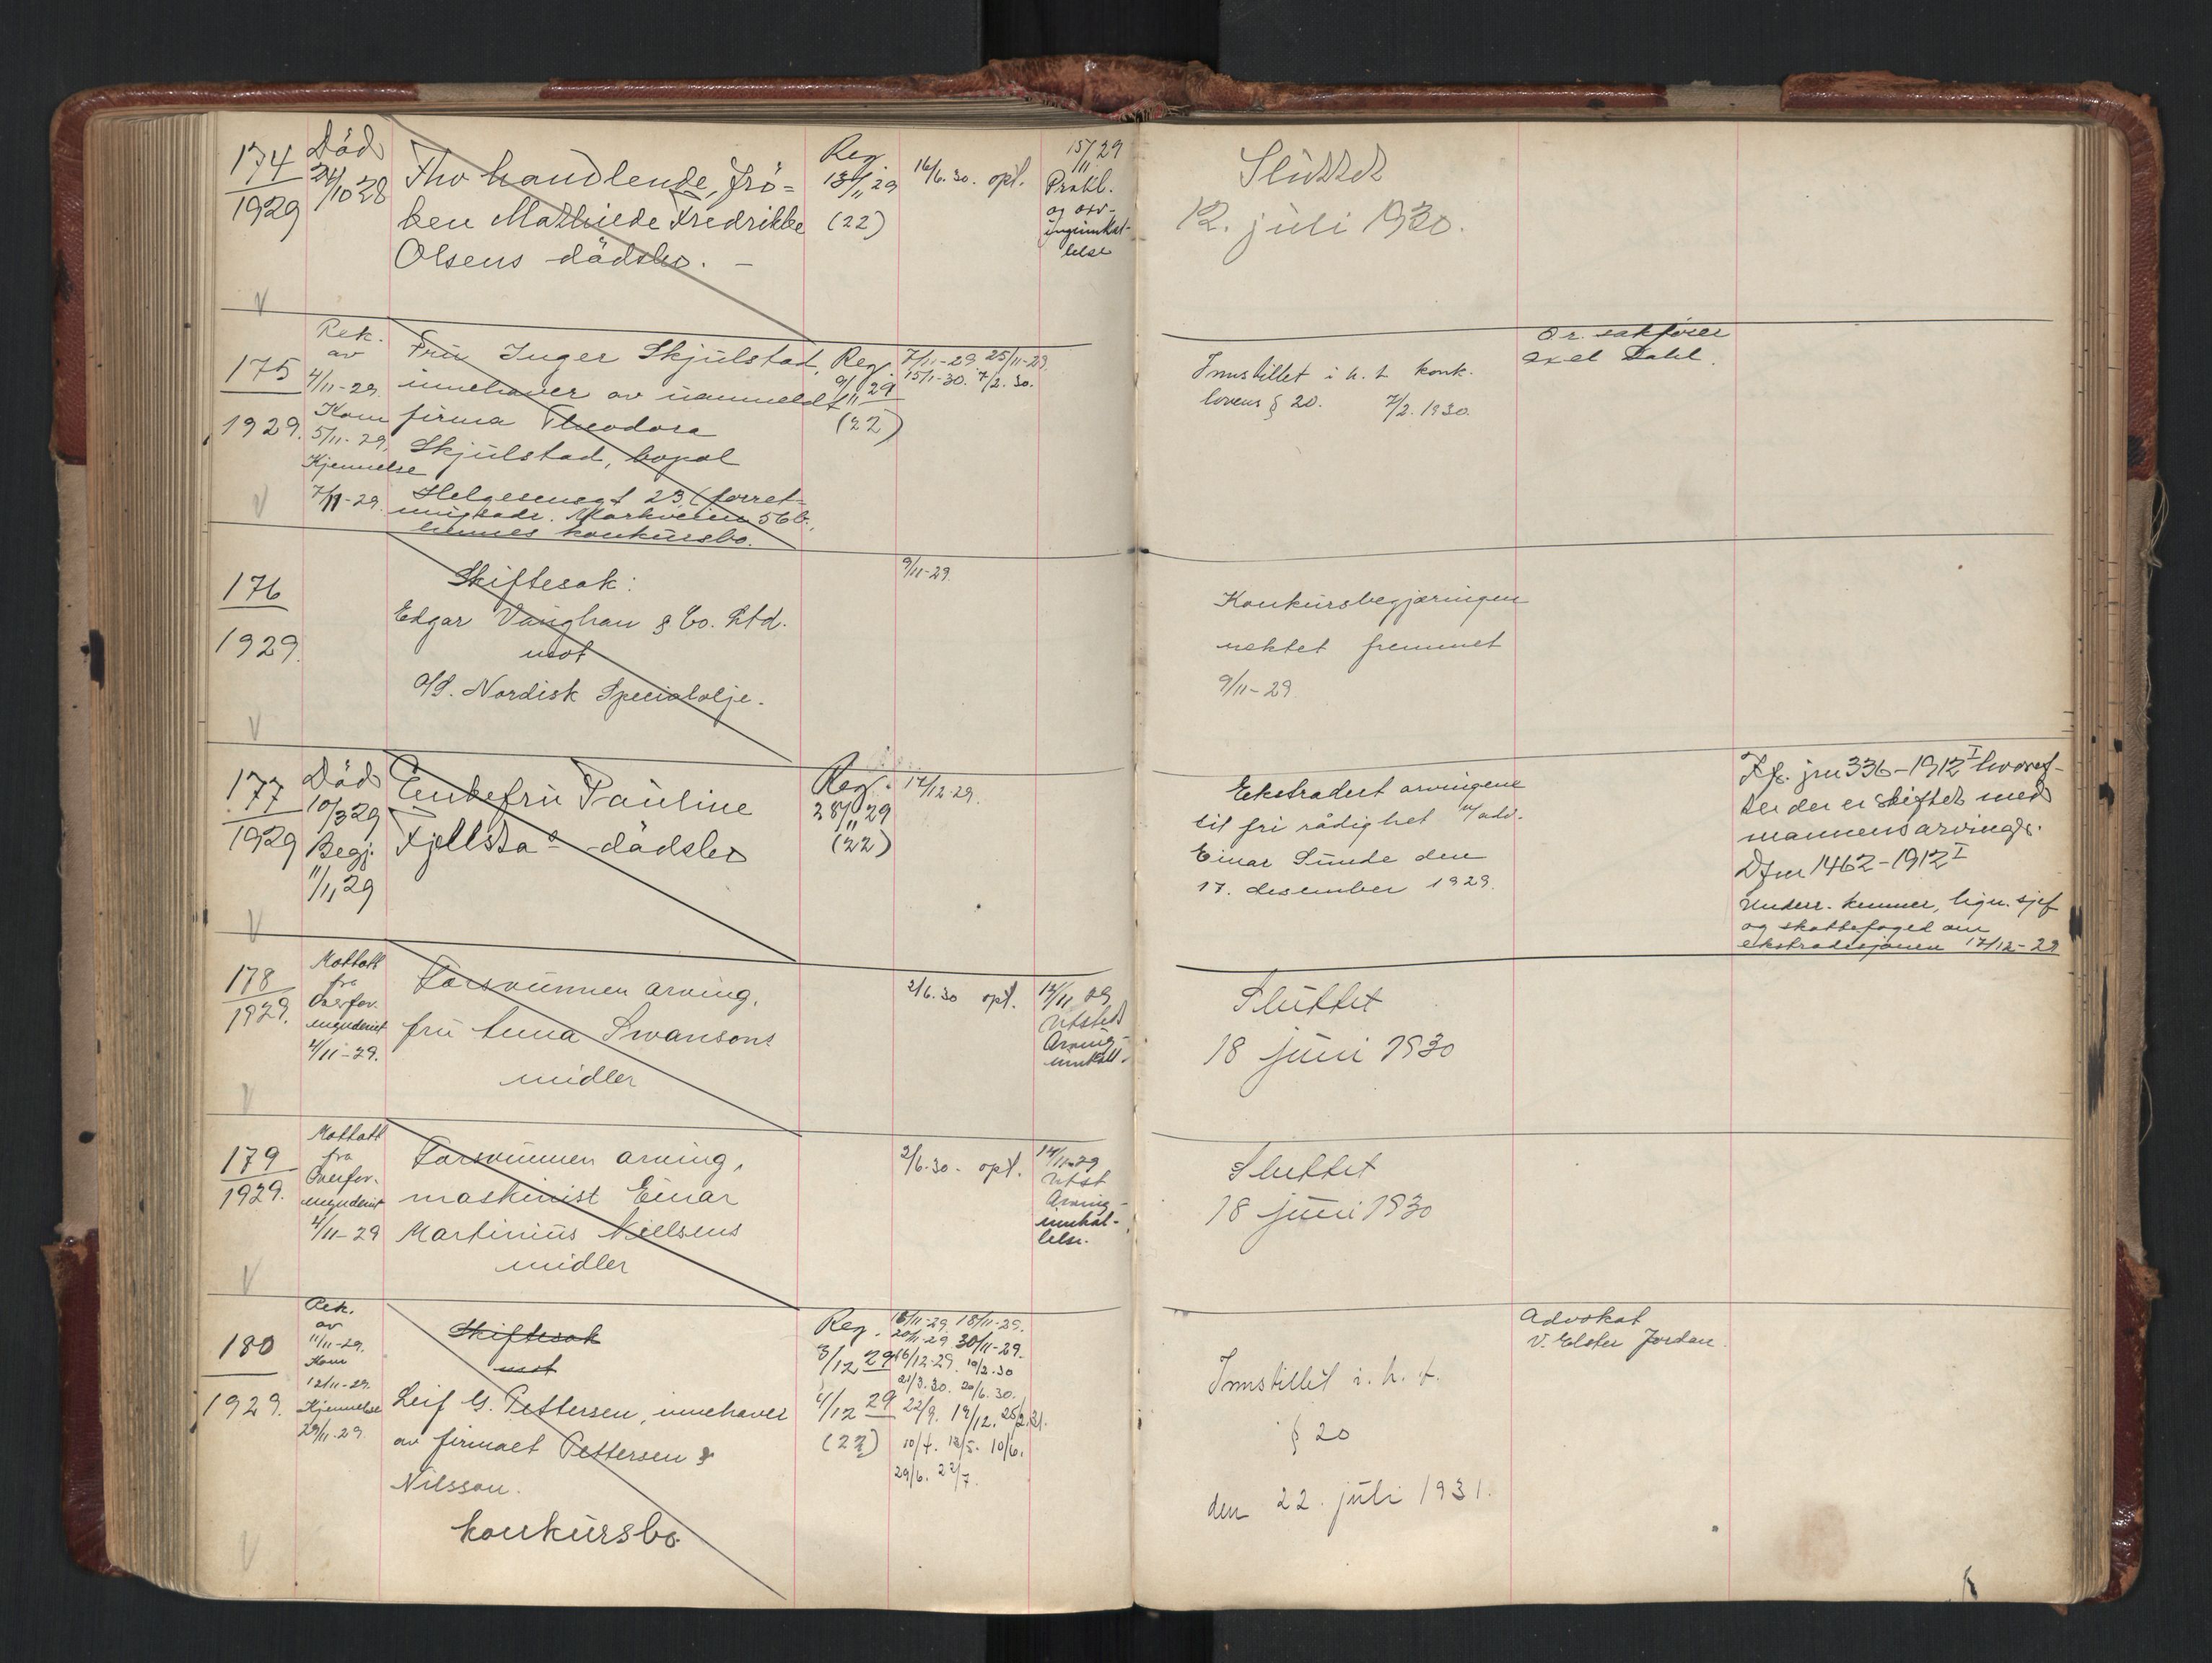 174
1929
Död
24/10 28
Fhv handlende, frö=
ken Mathilde Fredrikke
Olsens dödsbo. –
Reg
13/11 29
(22)
16/6.30. opt.
15/11 29
Prokl.
og arv-
inginnkal-
lelse
Sluttet
12. juli 1930.
V
175
1929.
Rek.
av
4/11-29.
Kom
5/11-29,
Kjennelse
7/11-29.
Fru Inger Skjulstad,
innehaver av uanmeldt
firma Theodora
Skjulstad, bopel
Helgesensgt 23, (forret-
ningsadr. Markveien 56b.,
hennes konkursbo.
Reg.
9/11 29
(22)
7/11-29. 25/11-29.
15/1-30. 7/2.30.
Innstillet i h. t. konk.
lovens § 20. 7/2.1930.
O.r. sakfører
Axel Dahl.
V
176
1929.
Skiftesak:
Edgar Vaughan & Co. Ltd.
mot
A/S. Nordisk Specialolje.
9/11-29.
Konkursbegjæringen
nektet fremmet
9/11-29
V
177
1929
Död
10/3 29
Begj.
11/11 29
Enkefru Pauline
Kjellsta's dödsbo
Reg.
28/11 29
(22)
17/12-29.
Ekstradert arvingene
til fri rådighet v/adv.
Einar Sunde den
17. desember 1929.
Jfr. jnr 336-1912 I hvoref-
ter der er skiftet med
mannens arvinger.
D jnr 1462-1912 I
Underr. kemner, lign. sjef
og skattefoged om
ekstradisjonen 17/12-29
V
178
1929.
Mottatt
fra
Overfor-
mynderiet
4/11-29.
Forsvunnen arving,
fru Anna Swansons
midler
2/6.30 opt.
14/11 29
Utstedt
Arving-
innkall.
Sluttet
18 juni 1930
V
179
1929.
Mottatt
fra
Overfor-
mynderiet
4/11-29
Forsvunnen arving,
maskinist Einar
Martinius Nielsens
midler
2/6.30. opt.
14/11-29
Utst
Arving-
innkal-
lelse.
Sluttet
18 juni 1930
V
180
1929.
Rek.
av
11/11-29.
Kom
12/11-29.
Kjennelse
29/11-29.
Skiftesak
mot
Leif G. Pettersen, innehaver
av firmaet Pettersen &
Nilsson.
konkursbo.
Reg.
3/12 29
4/12 29
(22)
16/11-29. 18/11-29.
20/11-29. 30/11-29.
16/12-29. 10/2-30
21/3.30. 20/6.30.
22/9. 19/12. 25/2.31.
10/4. 12/5. 10/6.
29/6. 22/7.
Innstillet i. h. t.
§ 20
den 22. juli 1931.
Advokat
V. Elster Jordan.
V